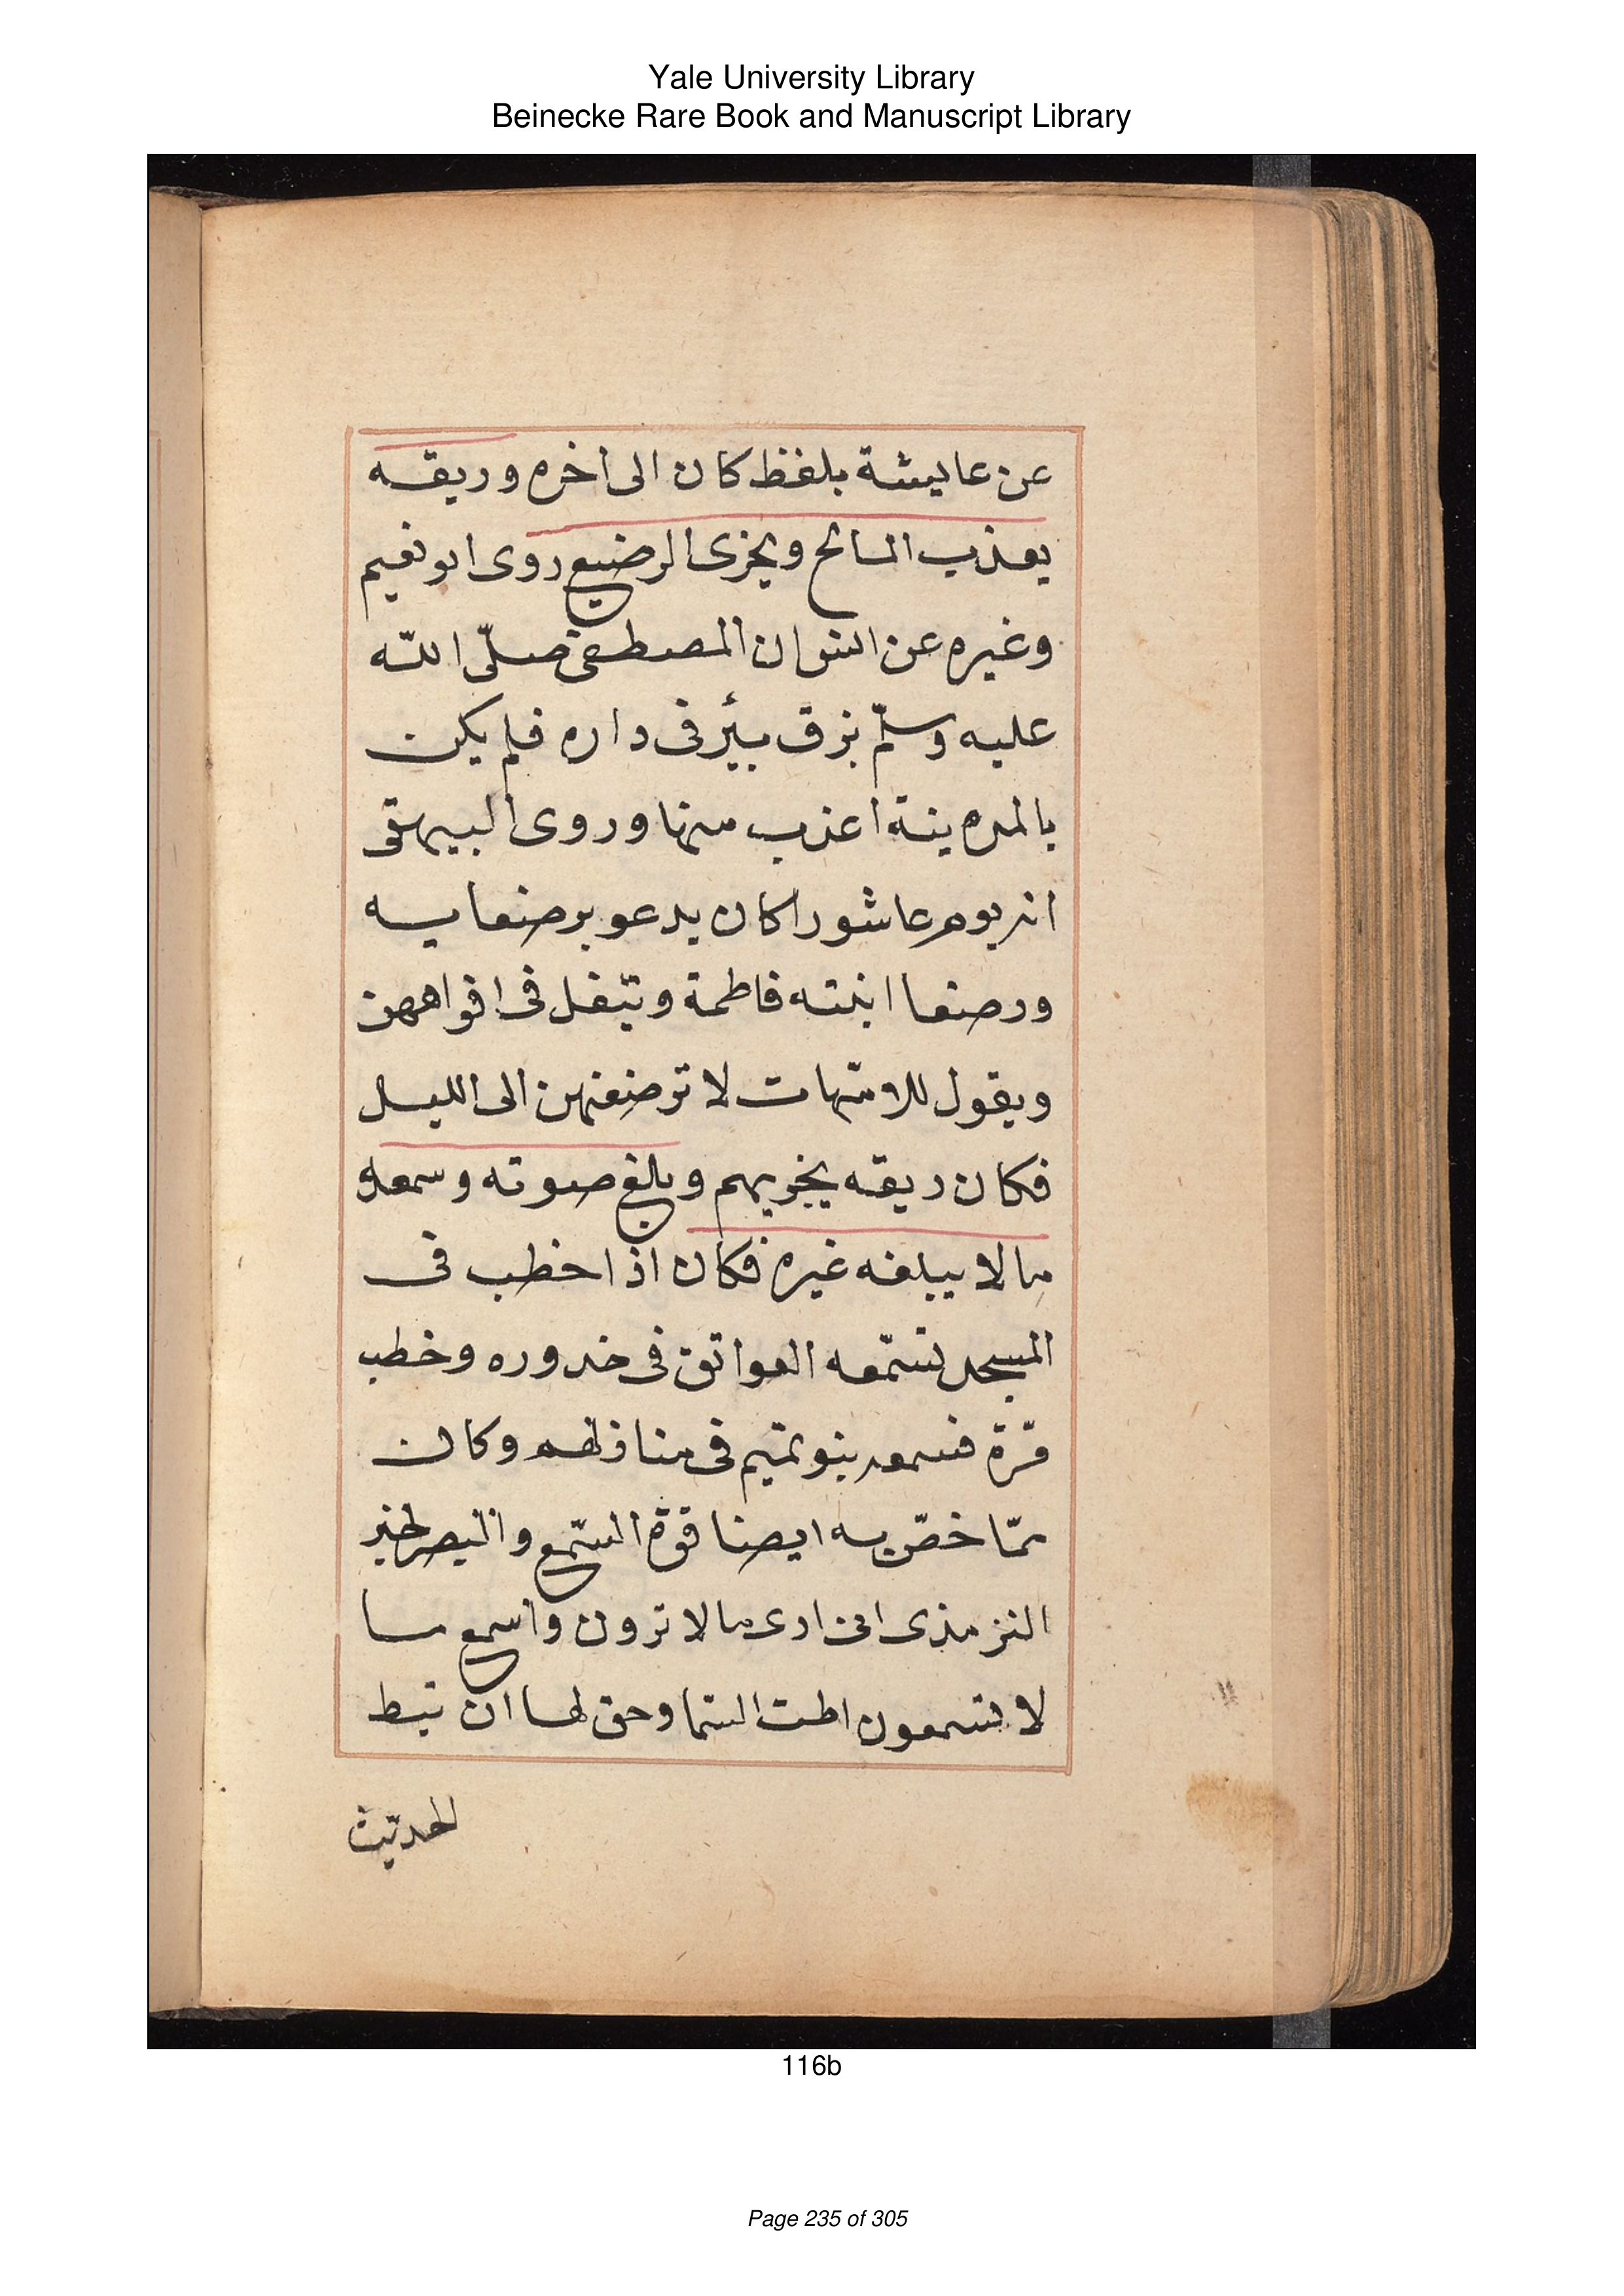 Yale University Library
Beinecke Rare Book and Manuscript Library
عن عايشة بلفظ كان الى اخره وريقه
يعذب المالح ويجزى الرضيع روى ابو نعيم
وغيره عن انس ان المصطفى صلّى الله
عليه وسلّم بزق ببئر فى داره فلم يكن
بالمدينة اعذب منها وروى البيهقى
انه يوم عاشورا كان يدعو برضعايه
ورضعا ابنته فاطمة ويتفل فى افواههن
ويقول للامّهات لا ترضعنهن الى الليل
فكان ريقه يجزيهم وبلغ صوته وسمعه
ما لا يبلغه غيره فكان اذا خطب فى
المسجد تسمّعه العواتق فى خدوره وخطب
مّرة فسمعه بنو تميم فى منازلهم وكان
ممّا خصّ به ايضا قوّة السّمع والبصر لخبر
الترمذى انى ارى ما لا ترون واسمع ما
لا تسمعون اطت السّما وحق لها ان تيط
الحديث
116b
Page 235 of 305